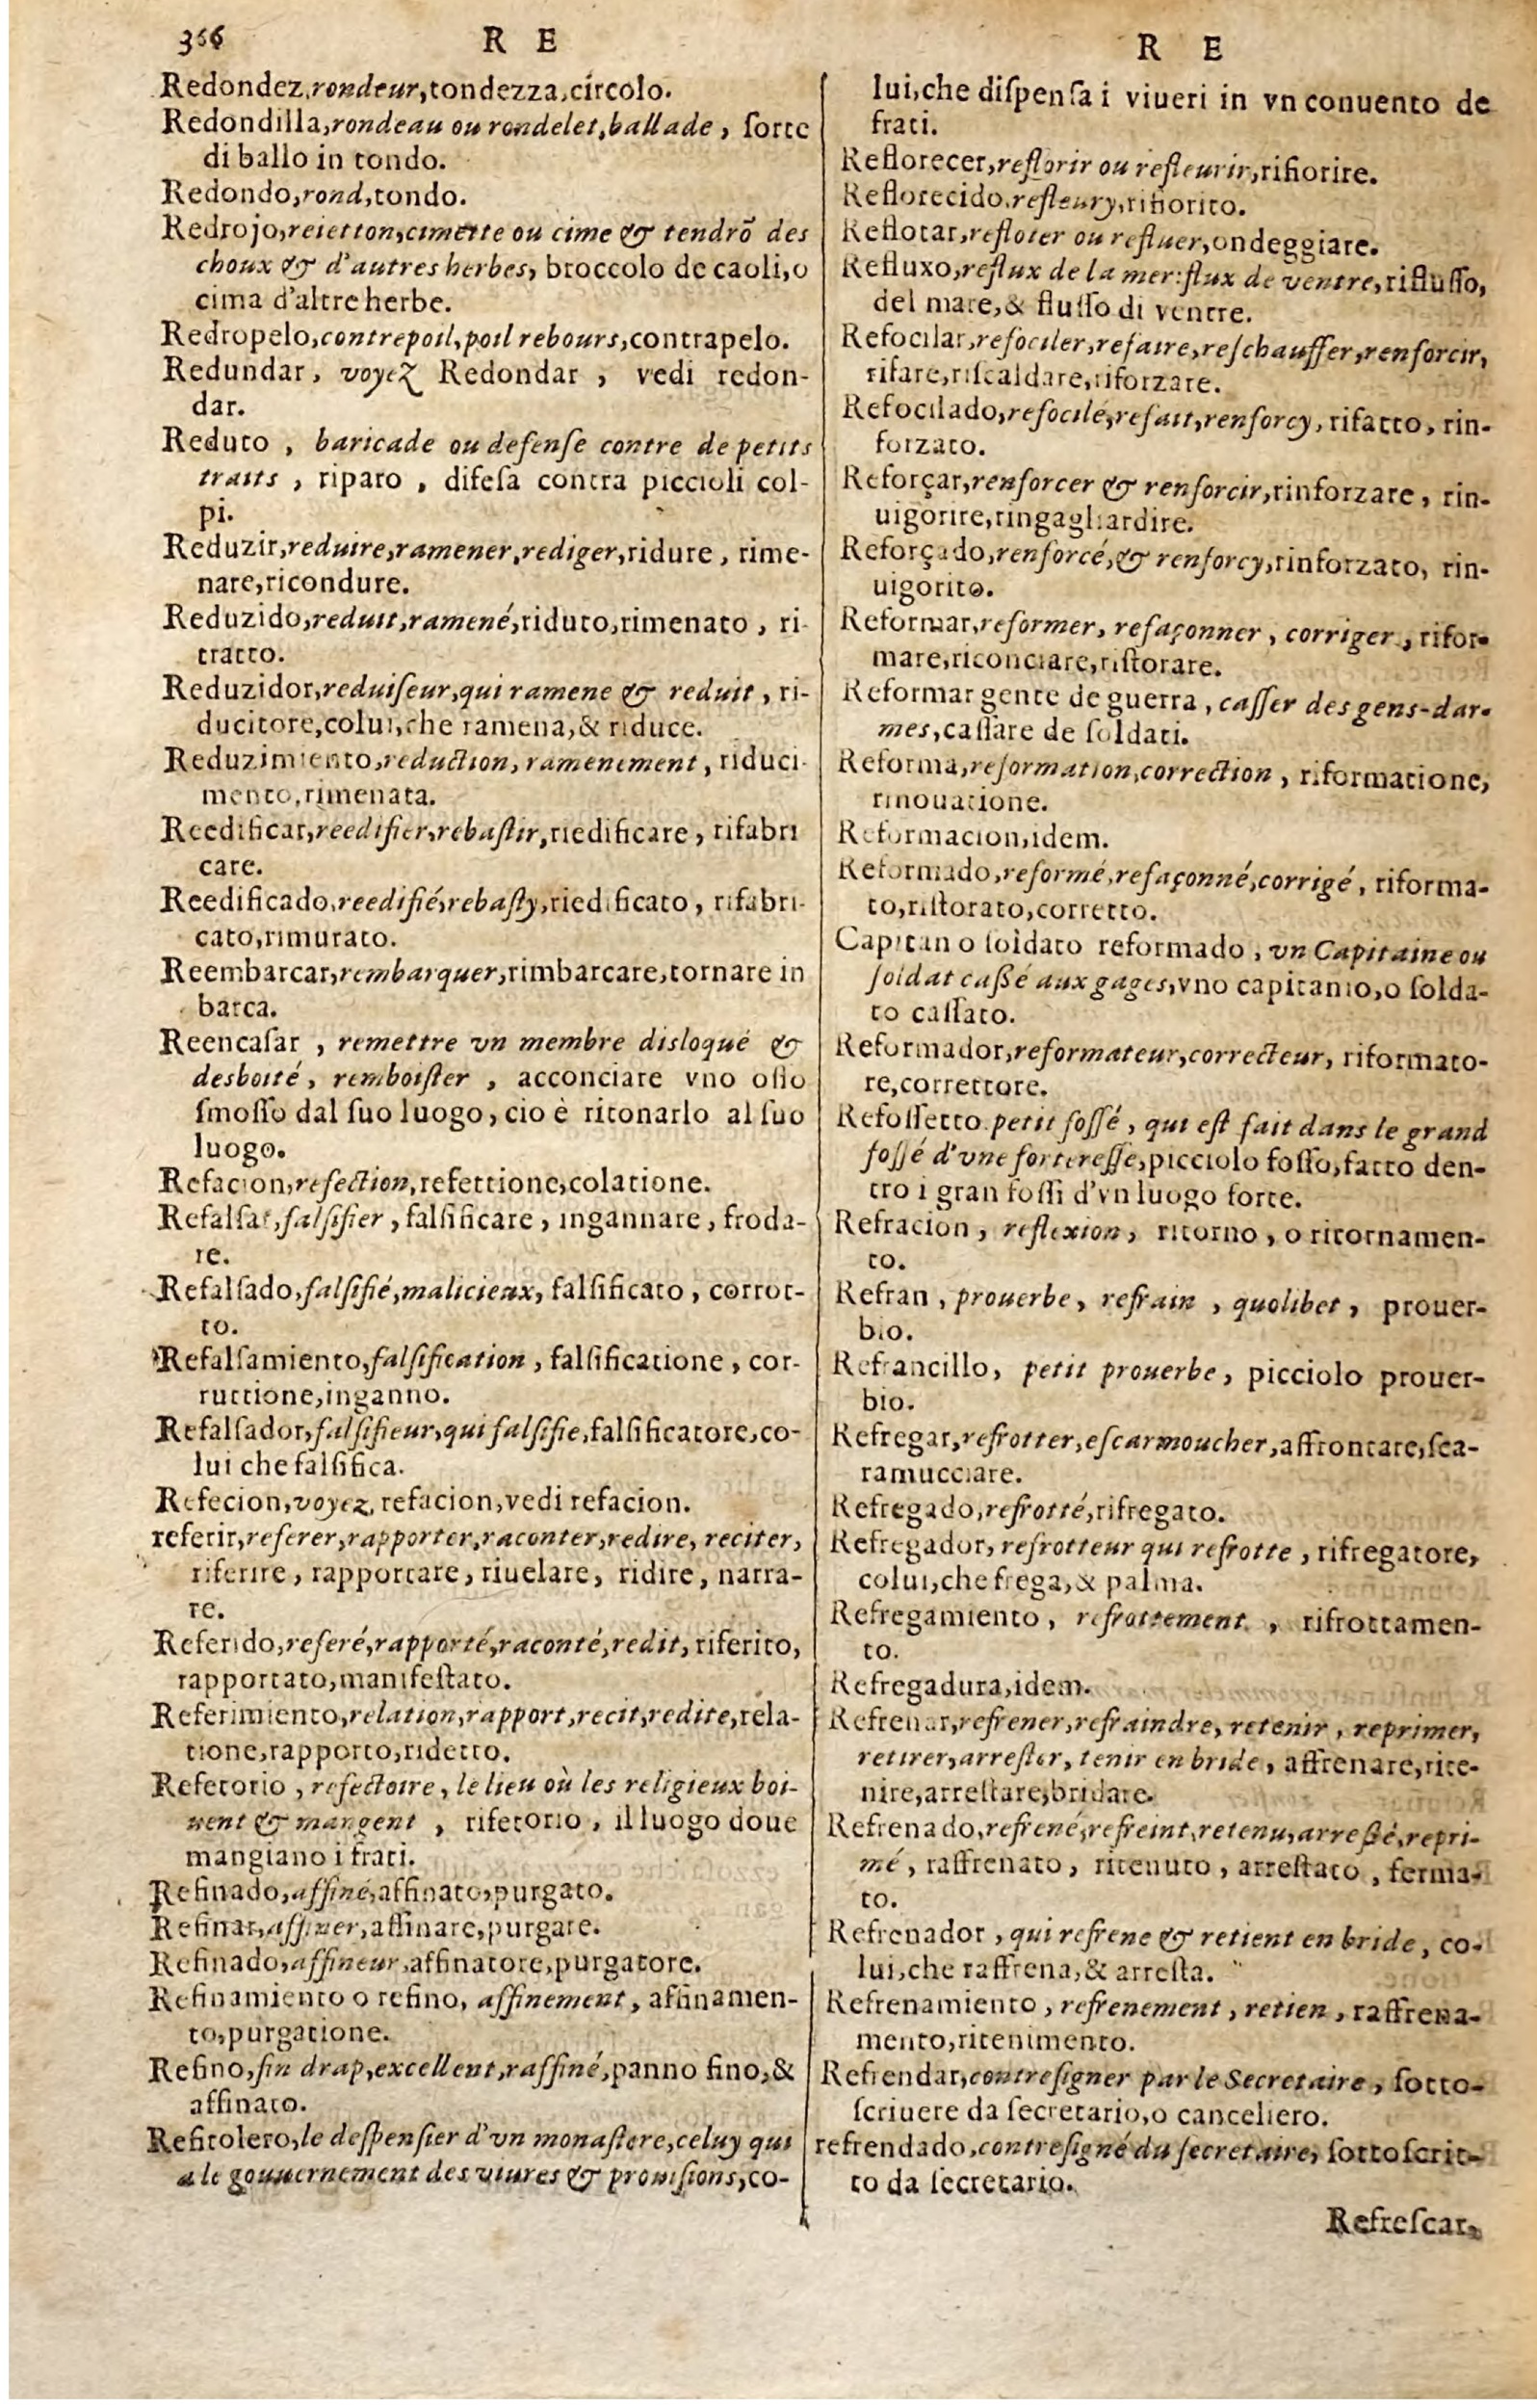 366 R E
Redondez, rondeur, tondezza, circolo.
Redondilla, rondeau ou rondelet, ballade, ſorte
di ballo in tondo.
Redondo, rond, tondo.
Redrojo, reietton, cimette ou cime & tendrõ des
choux & d'autres herbes, broccolo de caoli, o
cima d'altre herbe.
Redropelo, contrepoil, poil rebours, contrapelo.
Redundar, voyez Redondar, vedi redon-
dar.
Reduto, baricade ou defenſe contre de petits
traits, riparo, difeſa contra piccioli col-
pi.
Reduzir, reduire, ramener, rediger, ridure, rime-
nare, ricondure.
Reduzido, reduit, ramené, riduto, rimenato, ri-
tratto.
Reduzidor, reduiſeur, qui ramene & reduit, ri-
ducitore, colui, che ramena, & riduce.
Reduzimiento, reduction, ramenement, riduci-
mento, rimenata.
Reedificar, reedifier, rebaſtir, riedificare, rifabri
care.
Reedificado, reedifié, rebaſty, riedificato, rifabri-
cato, rimurato.
Reembarcar, rembarquer, rimbarcare, tornare in
barca.
Reencaſar, remettre vn membre disloqué &
desboité, remboiſter, acconciare vno oſſo
ſmoſſo dal ſuo luogo, cio è ritonarlo al ſuo
luogo.
Refacion, refection, refettione, colatione.
Refalſar, falſifier, falſificare, ingannare, froda-
re.
Refalſado, falſifié, malicieux, falſificato, corrot-
to.
Refalſamiento, falſification, falſificatione, cor-
ruttione, inganno.
Refalſador, falſifieur, qui falſifie, falſificatore, co-
lui che falſifica.
Refecion, voyez refacion, vedi refacion.
referir, referer, rapporter, raconter, redire, reciter,
riferire, rapportare, riuelare, ridire, narra-
re.
Referido, referé, rapporté, raconté, redit, riferito,
rapportato, manifeſtato.
Referimiento, relation, rapport, recit, redite, rela-
tione, rapporto, ridetto.
Refetorio, refectoire, le lieu où les religieux boi-
uent & mangent, rifetorio, il luogo doue
mangiano i frati.
Refinado, affiné, affinato, purgato.
Refinar, affiner, affinare, purgare.
Refinado, affineur, affinatore, purgatore.
Refinamiento o refino, affinement, affinamen-
to, purgatione.
Refino, fin drap, excellent, raffiné, panno fino, &
affinato.
Refitolero, le deſpenſier d'vn monaſtere, celuy qui
a le gouuernement des viures & prouiſions, co-
R E
lui, che diſpenſa i viueri in vn conuento de
frati.
Reflorecer, reflorir ou refleurir, rifiorire.
Reflorecido, refleury, rifiorito.
Reflotar, refloter ou refluer, ondeggiare.
Refluxo, reflux de la mer: flux de ventre, rifluſſo,
del mare, & fluſſo di ventre.
Refocilar, refociler, refaire, reſchauffer, renforcir,
rifare, riſcaldare, riforzare.
Refocilado, refocilé, refait, renforcy, rifatto, rin-
forzato.
Reforçar, renforcer & renforcir, rinforzare, rin-
uigorire, ringagliardire.
Reforçado, renforcé, & renforcy, rinforzato, rin-
uigorito.
Reformar, reformer, refaçonner, corriger, rifor-
mare, riconciare, riſtorare.
Reformar gente de guerra, caſſer des gens-dar-
mes, caſſare de ſoldati.
Reforma, reformation, correction, riformatione,
rinouatione.
Reformacion, idem.
Reformado, reformé, refaçonné, corrigé, riforma-
to, riſtorato, corretto.
Capitan o ſoldato reformado, vn Capitaine ou
ſoldat caßé aux gages, vno capitanio, o ſolda-
to caſſato.
Reformador, reformateur, correcteur, riformato-
re, correttore.
Refoſſetto petit foſſé, qui eſt fait dans le grand
foſſé d'vne fortereſſe, picciolo foſſo, fatto den-
tro i gran foſſi d'vn luogo forte.
Refracion, reflexion, ritorno, o ritornamen-
to.
Refran, prouerbe, refrain, quolibet, prouer-
bio.
Refrancillo, petit prouerbe, picciolo prouer-
bio.
Refregar, refrotter, eſcarmoucher, affrontare, ſca-
ramucciare.
Refregado, refrotté, rifregato.
Refregador, refrotteur qui refrotte, rifregatore,
colui, che frega, & palma.
Refregamiento, refrottement, rifrottamen-
to.
Refregadura, idem.
Refrenar, refrener, refraindre, retenir, reprimer,
retirer, arreſter, tenir en bride, affrenare, rite-
nire, arreſtare, bridare.
Refrenado, refrené, refreint, retenu, arreſté, repri-
mé, raffrenato, ritenuto, arreſtato, ferma-
to.
Refrenador, qui refrene & retient en bride, co-
lui, che raffrena, & arreſta.
Refrenamiento, refrenement, retien, raffrena-
mento, ritenimento.
Refrendar, contreſigner par le Secretaire, ſotto-
ſcriuere da ſecretario, o canceliero.
refrendado, contreſigné du ſecretaire, ſottoſcrit-
to da ſecretario.
Refreſcar,